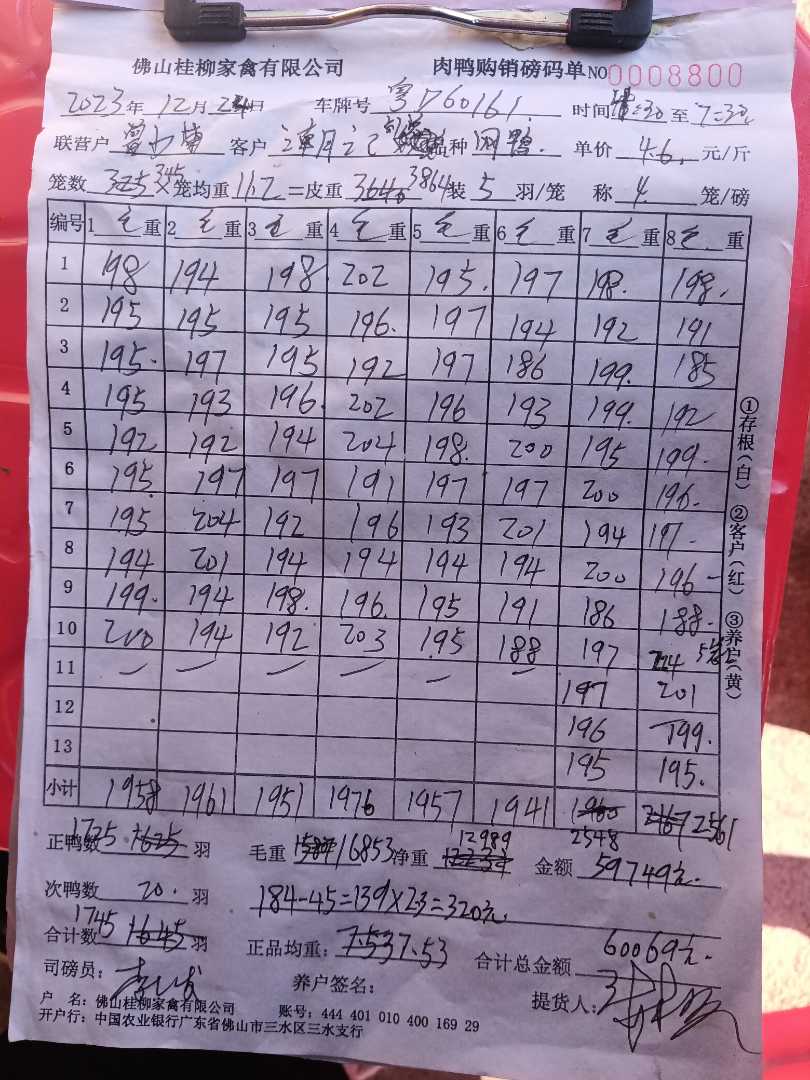 佛山桂柳家禽有限公司 肉鸭购销磅码单 NO 0008800
2023年12月24日 车牌号 粤D60161. 时间 至 7:30
联营户 客户 品种 单价 4.6. 元/斤
笼数 325 345 笼均重 11.2 =皮重 3640 3864 装 5 羽/笼 称 4 笼/磅
编号 1 毛 重 2 毛 重 3 毛 重 4 毛 重 5 毛 重 6 毛 重 7 毛 重 8 毛 重
1 198 194 198. 202 195. 197 198. 198.
2 195 195 195 196. 197 194 192 191
3 195. 197 195 192 197 186 199. 185
4 195 193 196. 202 196 193 199. 192
5 192 192 194 204 198. 200 195 199.
6 195. 197 197 191 197 197 200 196.
7 195 204 192 196 193 201 194 197.
8 194 201 194 194 194 194 200 196
9 199. 194 198. 196. 195 191 186 188.
10 200 194 192 203 195 188 197 224 5
11 — — — — — — 197 201
12 196 199.
13 195 195.
小计 1958 1961 1951 1976 1957 1941 1960 2548 2167 2561
正鸭数 1725 1625 羽 毛重 16853 净重 12989 金额 59749元.
次鸭数 20. 羽 184-45=139×2.3=320元.
合计数 1745 1645 羽 正品均重: 7.53 7.53 合计总金额 60069元.
司磅员: 养户签名: 提货人:
户 名: 佛山桂柳家禽有限公司 账号: 444 401 010 400 169 29
开户行: 中国农业银行广东省佛山市三水区三水支行
①存根(白) ②客户(红) ③养户(黄)